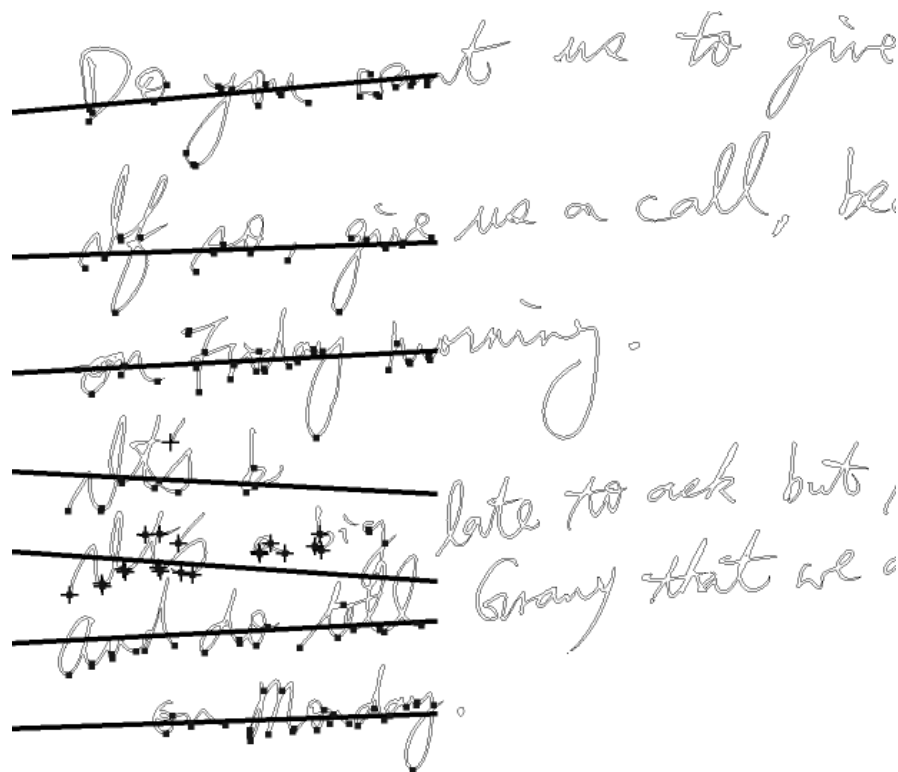 Do you want us to give
If so give us a call,
on Friday morning.
It's b
It's a big late to ask but
and do tell Grany that we
on Monday.